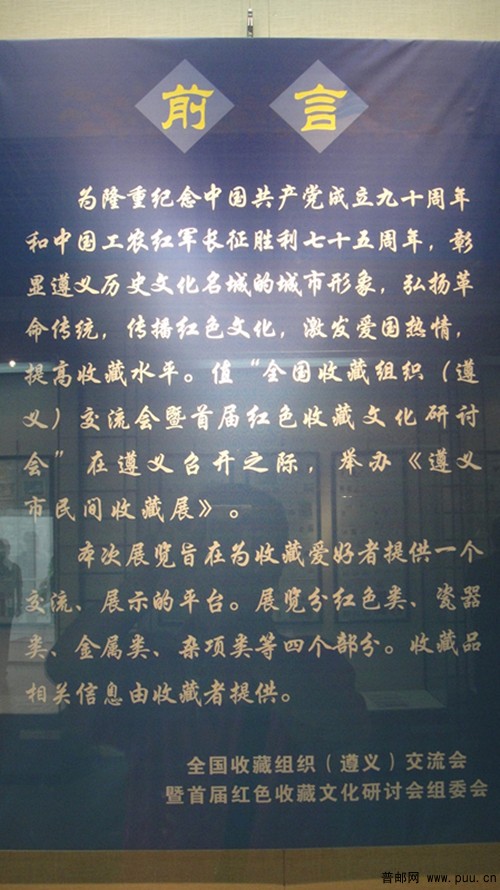 前言
为隆重纪念中国共产党成立九十周年
和中国工农红军长征胜利七十五周年，彰
显遵义历史文化名城的城市形象，弘扬革
命传统，传播红色文化，激发爱国热情，
提高收藏水平。值“全国收藏组织（遵
义）交流会暨首届红色收藏文化研讨
会”在遵义召开之际，举办《遵义
市民间收藏展》。
本次展览旨在为收藏爱好者提供一个
交流、展示的平台。展览分红色类、瓷器
类、金属类、杂项类等四个部分。收藏品
相关信息由收藏者提供。
全国收藏组织（遵义）交流会
暨首届红色收藏文化研讨会组委会
普邮网 www.puu.cn